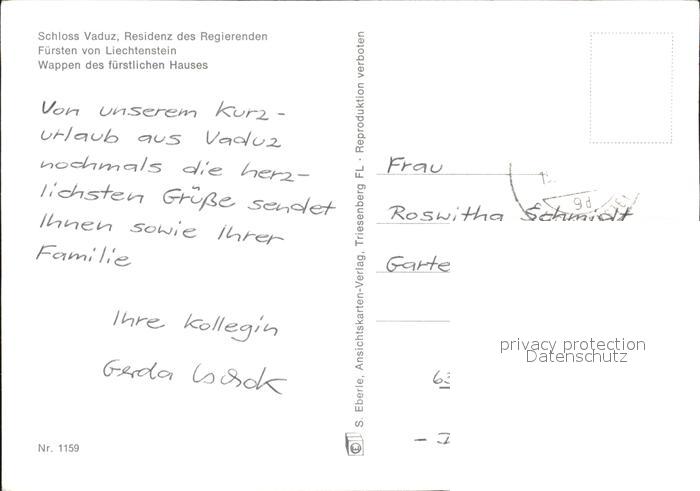 Schloss Vaduz, Residenz des Regierenden
Fürsten von Liechtenstein
Wappen des fürstlichen Hauses
Von unserem Kurz-
urlaub aus Vaduz
nochmals die herz-
lichsten Grüße sendet
Ihnen sowie Ihrer
Familie
Ihre Kollegin
Gerda
Nr. 1159
S. Eberle, Ansichtskarten-Verlag, Triesenberg FL · Reproduktion verboten
Frau
Roswitha Schmidt
Garte
63
privacy protection
Datenschutz